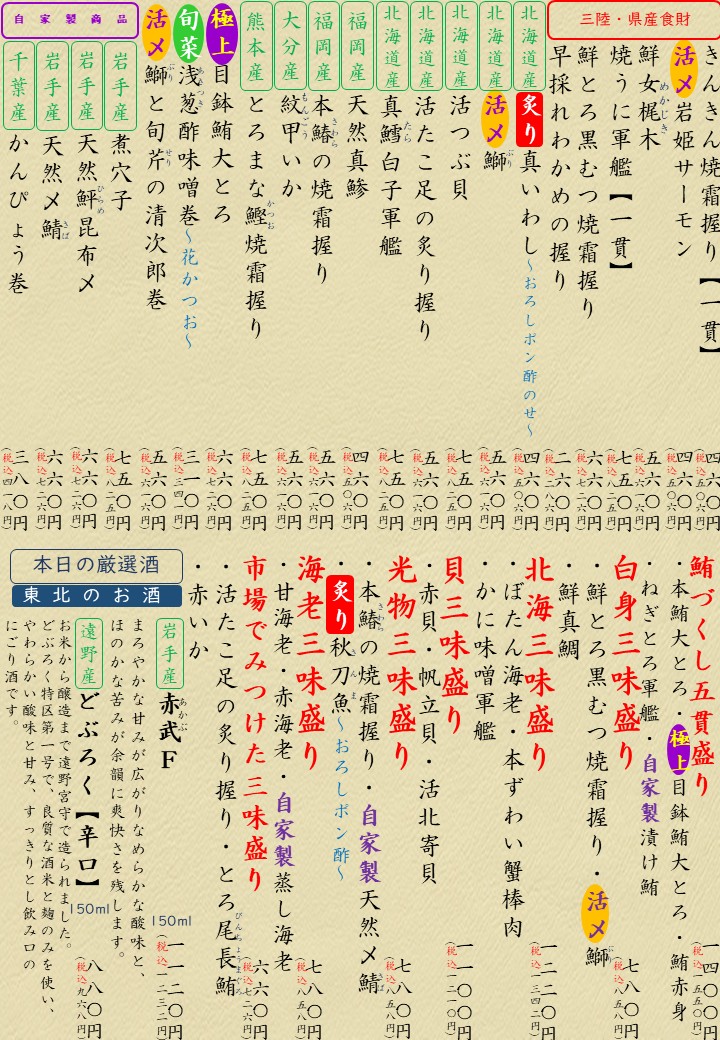 三陸・県産食財
きんきん焼霜握り【一貫】 四六〇円 (税込五〇六円)
活〆岩姫サーモン 四六〇円 (税込五〇六円)
鮮女梶木 五六〇円 (税込六一六円)
めかじき
焼うに軍艦【一貫】 七五〇円 (税込八二五円)
鮮とろ黒むつ焼霜握り 六六〇円 (税込七二六円)
早採れわかめの握り 二六〇円 (税込二八六円)
北海道産 炙り真いわし～おろしポン酢のせ～ 四六〇円 (税込五〇六円)
北海道産 活〆鰤 五六〇円 (税込六一六円)
ぶり
北海道産 活つぶ貝 七五〇円 (税込八二五円)
北海道産 活たこ足の炙り握り 五六〇円 (税込六一六円)
北海道産 真鱈白子軍艦 七五〇円 (税込八二五円)
たら
福岡産 天然真鯵 四六〇円 (税込五〇六円)
福岡産 本鰆の焼霜握り 五六〇円 (税込六一六円)
さわら
大分産 紋甲いか 五六〇円 (税込六一六円)
もんごう
熊本産 とろまな鰹焼霜握り 七五〇円 (税込八二五円)
かつお
極上 目鉢鮪大とろ 六六〇円 (税込七二六円)
旬菜 浅葱酢味噌巻～花かつお～ 三一〇円 (税込三四一円)
あさつき
活〆 鰤と旬芹の清次郎巻 五六〇円 (税込六一六円)
ぶり せり
自家製商品
岩手産 煮穴子 七五〇円 (税込八二五円)
岩手産 天然鮃昆布〆 六六〇円 (税込七二六円)
ひらめ
岩手産 天然〆鯖 六六〇円 (税込七二六円)
さば
千葉産 かんぴょう巻 三八〇円 (税込四一八円)
鮪づくし五貫盛り 一四〇〇円 (税込一五四〇円)
・本鮪大とろ・極上目鉢鮪大とろ・鮪赤身
・ねぎとろ軍艦・自家製漬け鮪
白身三味盛り 七八〇円 (税込八五八円)
・鮮とろ黒むつ焼霜握り・活〆鰤
ぶり
・鮮真鯛
北海三味盛り 一二二〇円 (税込一三四二円)
・ぼたん海老・本ずわい蟹棒肉
・かに味噌軍艦
貝三味盛り 一一〇〇円 (税込一二一〇円)
・赤貝・帆立貝・活北寄貝
光物三味盛り 七八〇円 (税込八五八円)
・本鰆の焼霜握り・自家製天然〆鯖
さわら さば
・炙り秋刀魚～おろしポン酢～
さんま
海老三味盛り 七八〇円 (税込八五八円)
・甘海老・赤海老・自家製蒸し海老
市場でみつけた三味盛り 六六〇円 (税込七二六円)
・活たこ足の炙り握り・とろ尾長鮪
びんちょうまぐろ
・赤いか
本日の厳選酒
東北のお酒
岩手産 赤武F 150ml 一一二〇円 (税込一二三二円)
あかぶ
まろやかな甘みが広がりなめらかな酸味と、
ほのかな苦みが余韻に爽快さを残します。
遠野産 どぶろく【辛口】 150ml 八八〇円 (税込九六八円)
お米から醸造まで遠野宮守で造られました。
どぶろく特区第一号で、良質な酒米と麹のみを使い、
やわらかい酸味と甘み、すっきりとし飲み口の
にごり酒です。